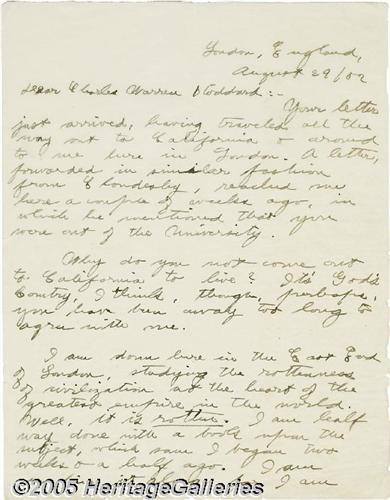 London, England,
August 29/02
Dear Charles Warren Stoddard:-
Your letter
just arrived, having traveled all the
way out to California & around
to me here in London. A letter,
forwarded in similar fashion
from Cloudesley, reached me
here a couple of weeks ago, in
which he mentioned that you
were out of the University.
Why do you not come out
to California to live? It's God's
Country, I think, though, perhaps,
you have been away too long to
agree with me.
I am down here in the East End
of London, studying the rottenness
of civilization at the heart of the
greatest empire in the world.
Well, it is rotten. I am half
way done with a book upon the
subject, which same I began two
weeks & a half ago. I am
I am
©2005 HeritageGalleries